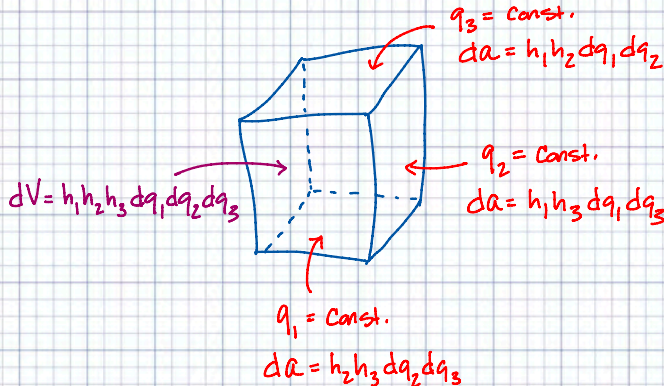 q₃ = Const.
da = h₁h₂dq₁dq₂
q₂ = Const.
da = h₁h₃dq₁dq₃
dV = h₁h₂h₃dq₁dq₂dq₃
q₁ = Const.
da = h₂h₃dq₂dq₃